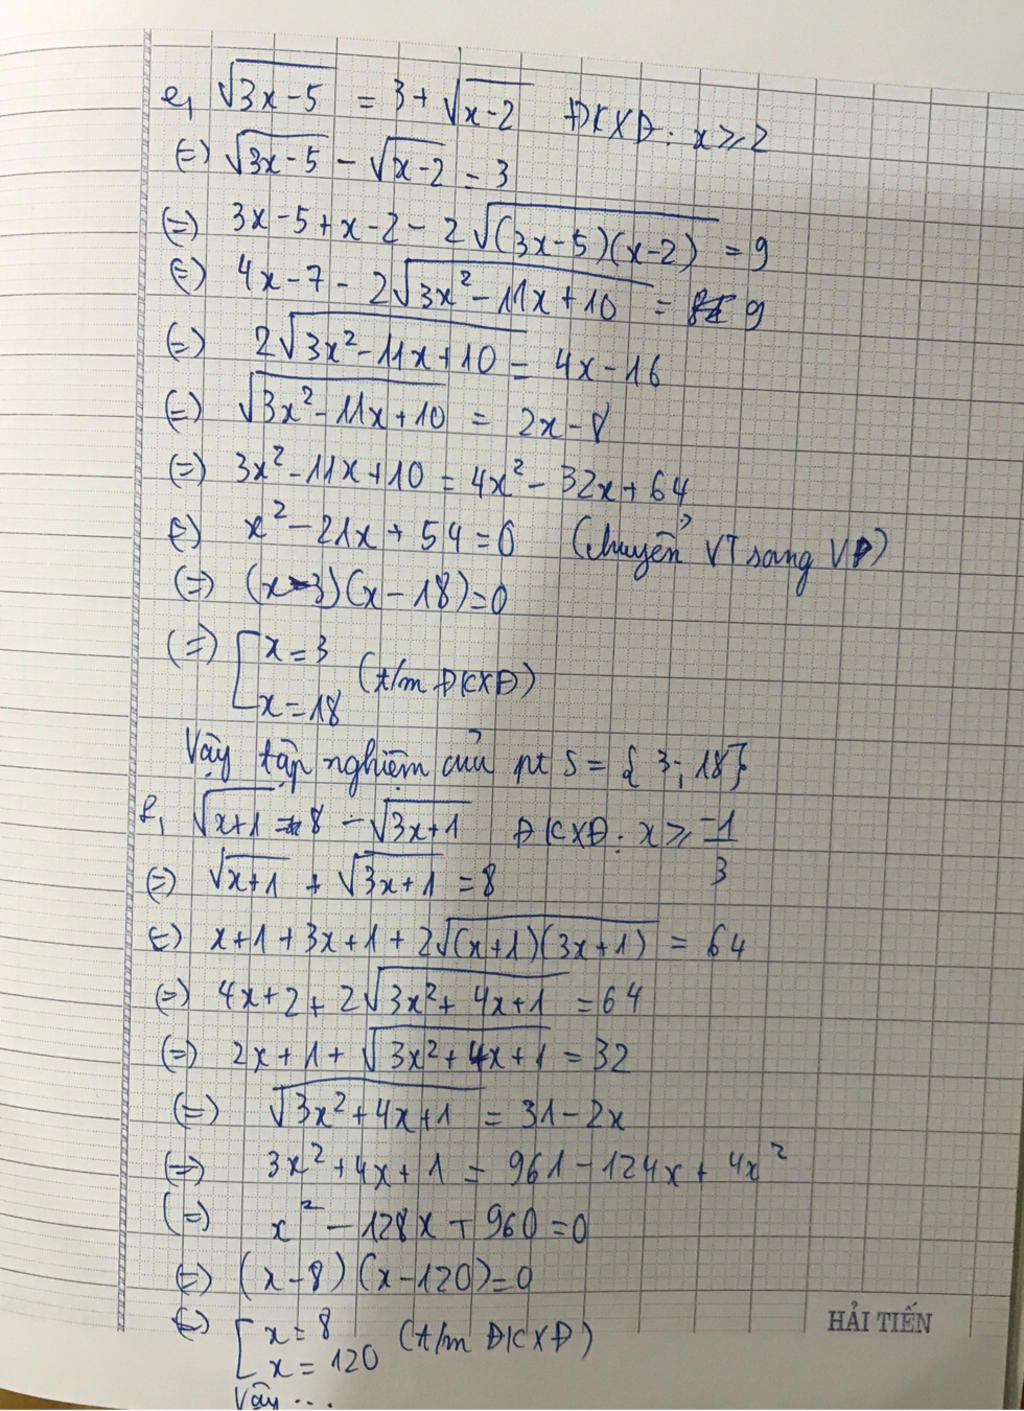 e, √(3x-5) = 3 + √(x-2) ĐKXĐ: x ⩾ 2
(=) √(3x-5) - √(x-2) = 3
(=) 3x-5+x-2-2√((3x-5)(x-2)) = 9
(=) 4x-7-2√(3x²-11x+10) = 9
(=) 2√(3x²-11x+10) = 4x-16
(=) √(3x²-11x+10) = 2x-8
(=) 3x²-11x+10 = 4x²-32x+64
(=) x²-21x+54=0 (chuyển VT sang VP)
(=) (x-3)(x-18)=0
(=) [x=3
x=18 (t/m ĐKXĐ)
Vậy tập nghiệm của pt S = {3; 18}
f, √(x+1) = 8 - √(3x+1) ĐKXĐ: x ⩾ -1/3
(=) √(x+1) + √(3x+1) = 8
(=) x+1+3x+1+2√((x+1)(3x+1)) = 64
(=) 4x+2+2√(3x²+4x+1) = 64
(=) 2x+1+√(3x²+4x+1) = 32
(=) √(3x²+4x+1) = 31-2x
(=) 3x²+4x+1 = 961-124x+4x²
(=) x²-128x+960=0
(=) (x-8)(x-120)=0
(=) [x=8
x=120 (t/m ĐKXĐ)
Vậy ...
HẢI TIẾN